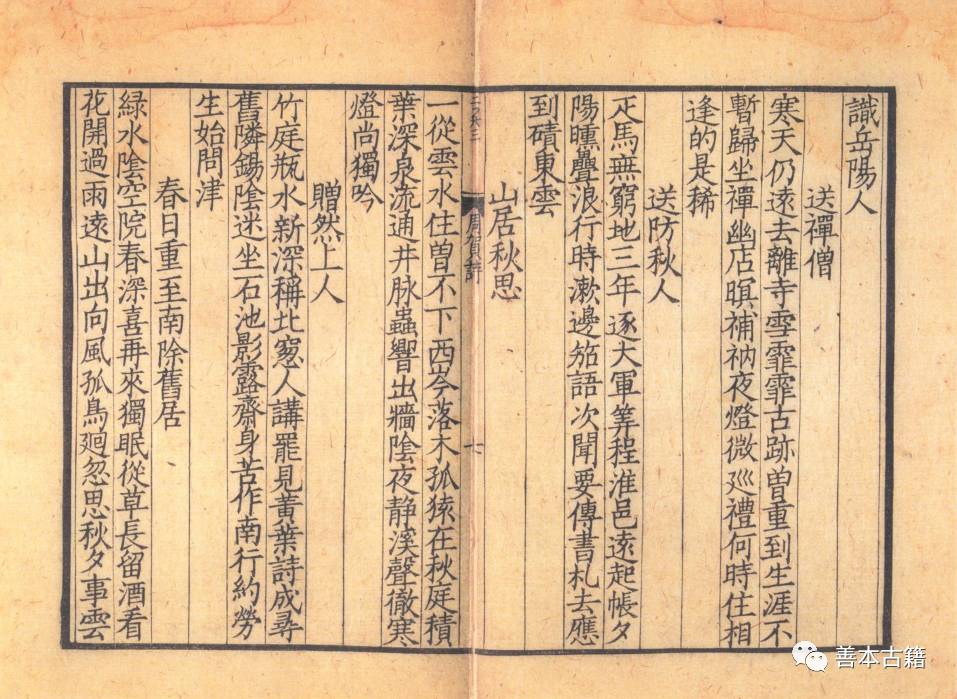 識岳陽人
送禪僧
寒天仍遠去離寺雪霏霏古跡曽重到生涯不
暫歸坐禪幽店暝補衲夜燈微巡禮何時住相
逢的是稀
送防秋人
疋馬無窮地三年逐大軍筭程淮邑遠起帳夕
陽曛疊浪行時漱邊笳語次聞要傳書札去應
到磧東雲
山居秋思
周賀詩
十
一從雲水住曽不下西岑落木孤猿在秋庭積
葉深泉流通井脉蟲響出牆陰夜静溪聲徹寒
燈尚獨吟
贈然上人
竹庭瓶水新深稱北窓人講罷見黃葉詩成尋
舊隣錫陰迷坐石池影露齋身苦作南行約勞
生始問津
春日重至南除舊居
緑水陰空院春深喜再來獨眠從草長留酒看
花開過雨遠山出向風孤鳥廻忽思秋夕事雲
善本古籍